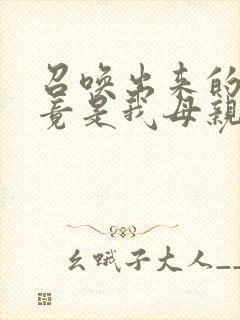 召唤出来的
竟是我母親
幺哦子大人__